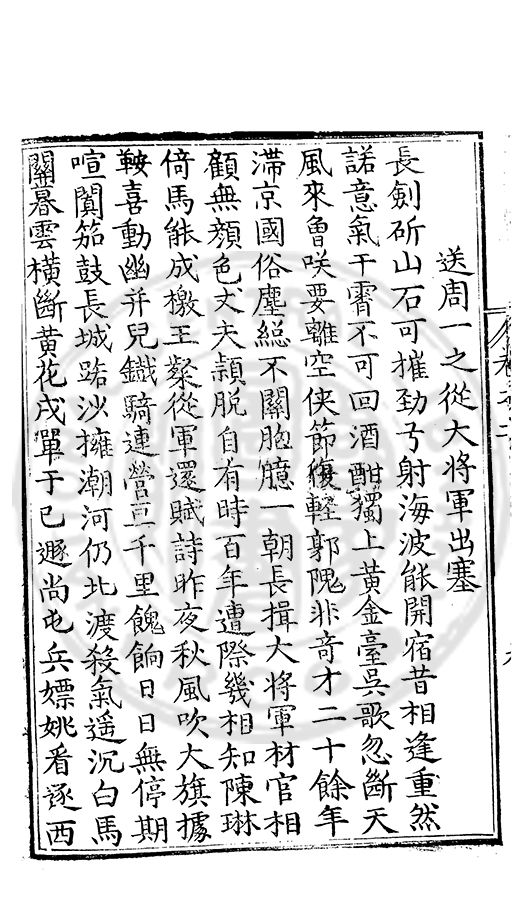 送周一之從大將軍出塞
長劍斫山石可摧勁弓射海波能開宿昔相逢重然
諾意氣干霄不可回酒酣獨上黃金臺吳歌忽斷天
風來魯咲要離空俠節復輕郭隗非奇才二十餘年
滯京國俗塵緫不關胸臆一朝長揖大將軍材官相
顧無顏色丈夫頴脫自有時百年遭際幾相知陳琳
倚馬能成檄王粲從軍還賦詩昨夜秋風吹大旗據
鞍喜動幽并兒鐵騎連營亘千里餽餉日日無停期
喧闐笳鼓長城踣沙擁潮河仍北渡殺氣遙沉白馬
關暮雲橫斷黃花戍單于已遯尚屯兵嫖姚看逐西